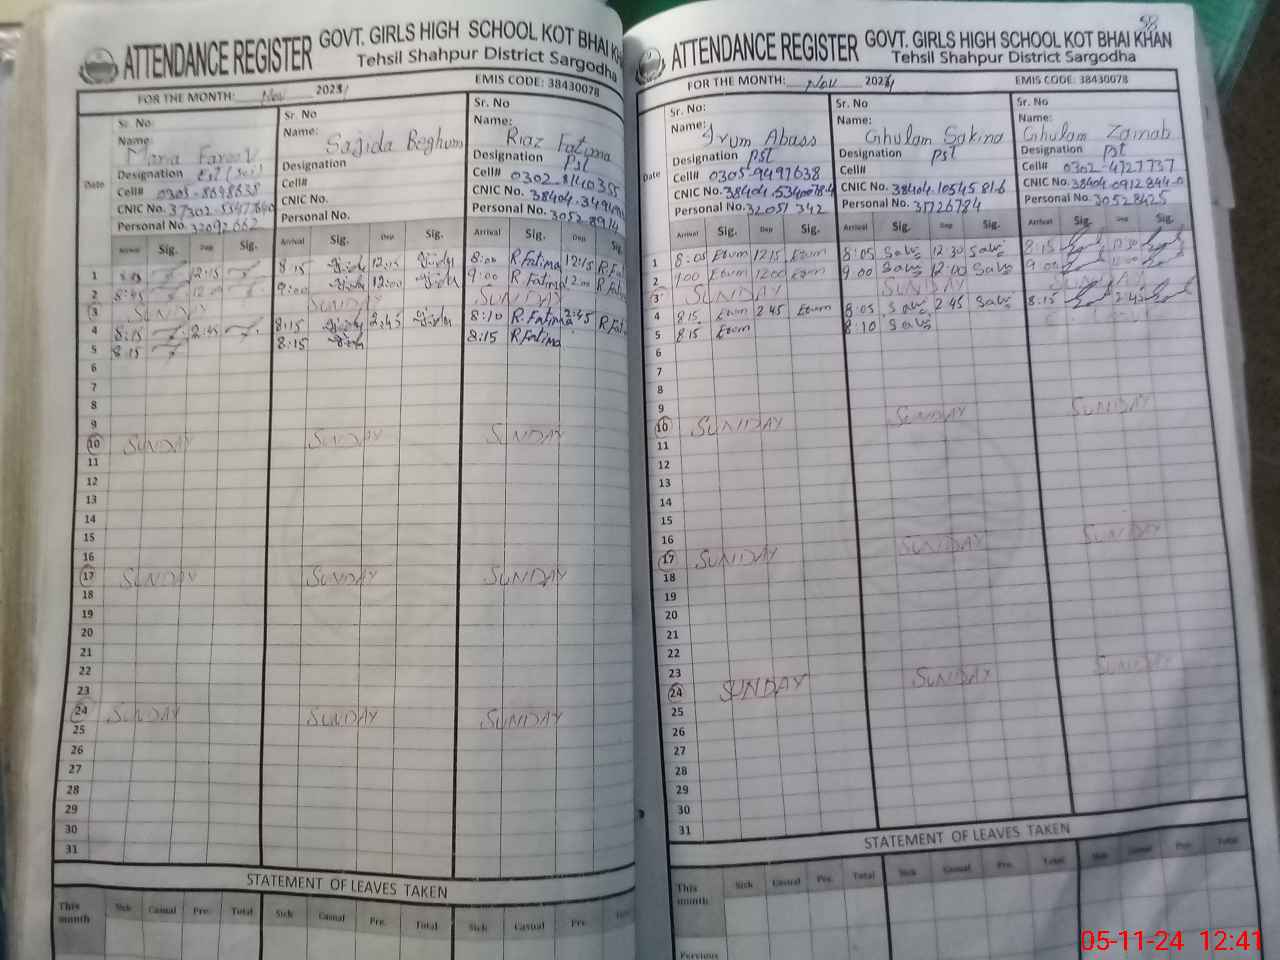 ATTENDANCE REGISTER GOVT. GIRLS HIGH SCHOOL KOT BHAI
Tehsil Shahpur District Sargodha
EMIS CODE: 38430078
FOR THE MONTH: Nov 2024
Sr. No
Name:
Designation
Cell# 0303-8698638
CNIC No.
Personal No. 32092662
Sr. No
Name: Sajida Beghum
Designation
Cell#
CNIC No.
Personal No.
Sr. No
Name: Riaz Fatima
Designation Pst
Cell# 0302-8140355
CNIC No.
Personal No. 30528914
Date Arrival Sig. Dep Sig. Arrival Sig. Dep Sig. Arrival Sig. Dep Sig.
1 12:15 8:15 12:15 8:00 R.Fatima 12:15
2 8:45 9:00 12:00 9:00 R.Fatima 12:00
3 SUNDAY SUNDAY SUNDAY
4 8:15 2:45 8:15 2:45 8:10 R.Fatima 2:45
5 8:15 8:15 8:15 R.Fatima
6
7
8
9
10 SUNDAY SUNDAY SUNDAY
11
12
13
14
15
16
17 SUNDAY SUNDAY SUNDAY
18
19
20
21
22
23
24 SUNDAY SUNDAY SUNDAY
25
26
27
28
29
30
31
STATEMENT OF LEAVES TAKEN
This month Sick Casual Pre. Total Sick Casual Pre. Total Sick Casual Pre.
ATTENDANCE REGISTER GOVT. GIRLS HIGH SCHOOL KOT BHAI KHAN
Tehsil Shahpur District Sargodha
FOR THE MONTH: Nov 2024 EMIS CODE: 38430078
Sr. No:
Name: Irum Abass
Designation pst
Cell# 0305-9497638
CNIC No. 38404-5340078-4
Personal No. 32057342
Sr. No
Name: Ghulam Sakina
Designation pst
Cell#
CNIC No. 38404-10545 81-6
Personal No. 31726784
Sr. No
Name: Ghulam Zainab
Designation pst
Cell# 0302-4727737
CNIC No. 38404-0912844-0
Personal No. 30528425
Date Arrival Sig. Dep Sig. Arrival Sig. Dep Sig. Arrival Sig. Dep Sig.
1 8:05 Erum 12:15 Erum 8:05 12:30 8:15
2 9:00 Erum 12:00 Erum 9:00 12:00
3 SUNDAY SUNDAY
4 8:15 Erum 2:45 Erum 8:05 2:45 8:15 2:45
5 8:15 Erum 8:10
6
7
8
9
10 SUNDAY SUNDAY SUNDAY
11
12
13
14
15
16
17 SUNDAY SUNDAY SUNDAY
18
19
20
21
22
23
24 SUNDAY SUNDAY SUNDAY
25
26
27
28
29
30
31
STATEMENT OF LEAVES TAKEN
This month Sick Casual Pre. Total Sick Casual Pre. Total Sick Casual Pre. Total
Previous
05-11-24 12:41